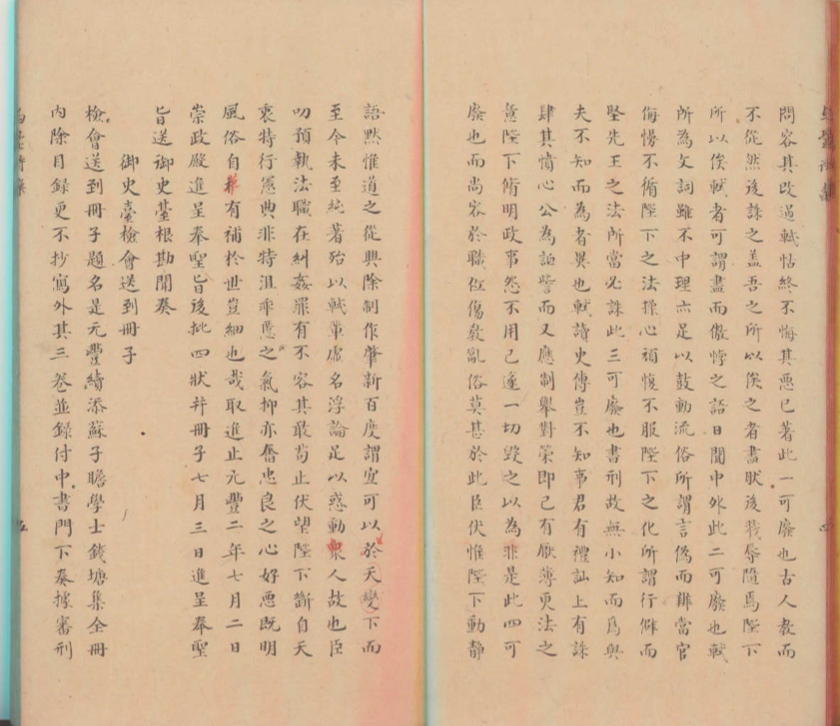 問容其改過軾怙終不悔其悪已著此一可廢也古人教而
不從然後誅之盖吾之所以俟之者盡然後戮辱隨焉陛下
所以俟軾者可謂盡而傲悖之語日聞中外此二可廢也軾
所為文詞雖不中理亦足以鼓動流俗所謂言偽而辯當官
侮慢不循陛下之法操心頑愎不服陛下之化所謂行僻而
堅先王之法所當必誅此三可廢也書刑故無小知而爲與
夫不知而為者異也軾讀史傳豈不知事君有禮訕上有誅
肆其憤心公為詆訾而又應制舉對策即已有厭薄更法之
意陛下脩明政事怨不用己遂一切毀之以為非是此四可
廢也而尚容於職位傷教亂俗莫甚於此臣伏惟陛下動靜
語默惟道之從興除制作肇新百度謂宜可以於天變下而
至今未至純著殆以軾軰虛名浮論足以惑動衆人故也臣
叨預執法職在糾姦罪有不容其敢苟止伏望陛下斷自天
衷特行憲典非特沮乖慝之氣抑亦奮忠良之心好悪既明
風俗自革有補於世豈細也哉取進止元豐二年七月二日
崇政殿進呈奉聖旨後批四狀并冊子七月三日進呈奉聖
旨送御史臺根勘聞奏
御史臺檢會送到冊子
檢會送到冊子題名是元豐續添蘇子瞻學士錢塘集全冊
內除目録更不抄寫外其三卷並録付中書門下奏據審刑